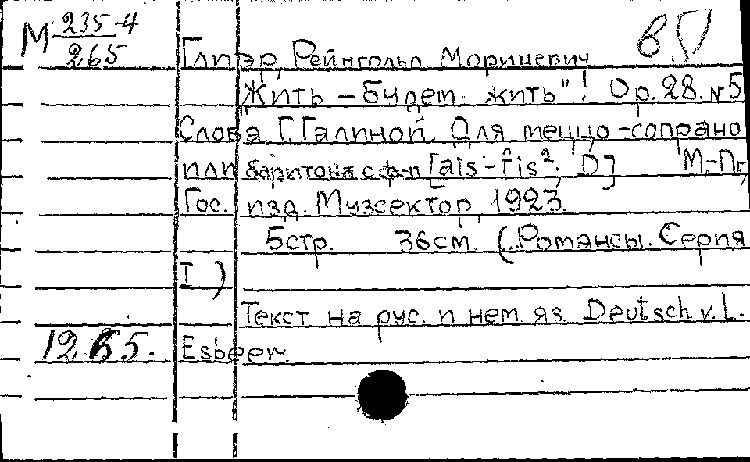 М 235-4
265
Глиэр, Рейнгольд Морицевич
"Жить – будем жить"! Op. 28. №5
Слова Г. Галиной. Для меццо-сопрано
или баритона с ф-п [ais-fis²; D] М.-Пг,
Гос. изд. Музсектор, 1923.
5стр. 36см. (Романсы. Серия
I.)
Текст на рус. и нем. яз. Deutsch v. L.
Esbeer.